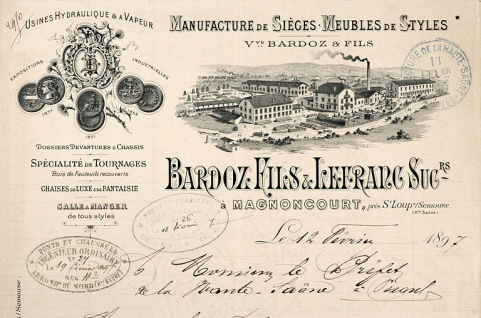 Usines Hydraulique & à Vapeur
Expositions
Industrielles
Manufacture de Sièges · Meubles de Styles
Vve Bardoz & Fils
Dossiers Devantures & Chassis
Spécialité de Tournages
Bois de Fauteuils recouverts
Chaises de Luxe & de Fantaisie
Salle à Manger
de tous styles
Bardoz Fils & Lefranc Sucrs
à Magnoncourt, près St Loup s/Semouse
(Hte Saône)
Le 12 Février 1897
Ponts et Chaussées
Ingénieur Ordinaire
19 Février
26
Février 7
Monsieur le Préfet
de la Haute-Saône à Vesoul
s/Semouse